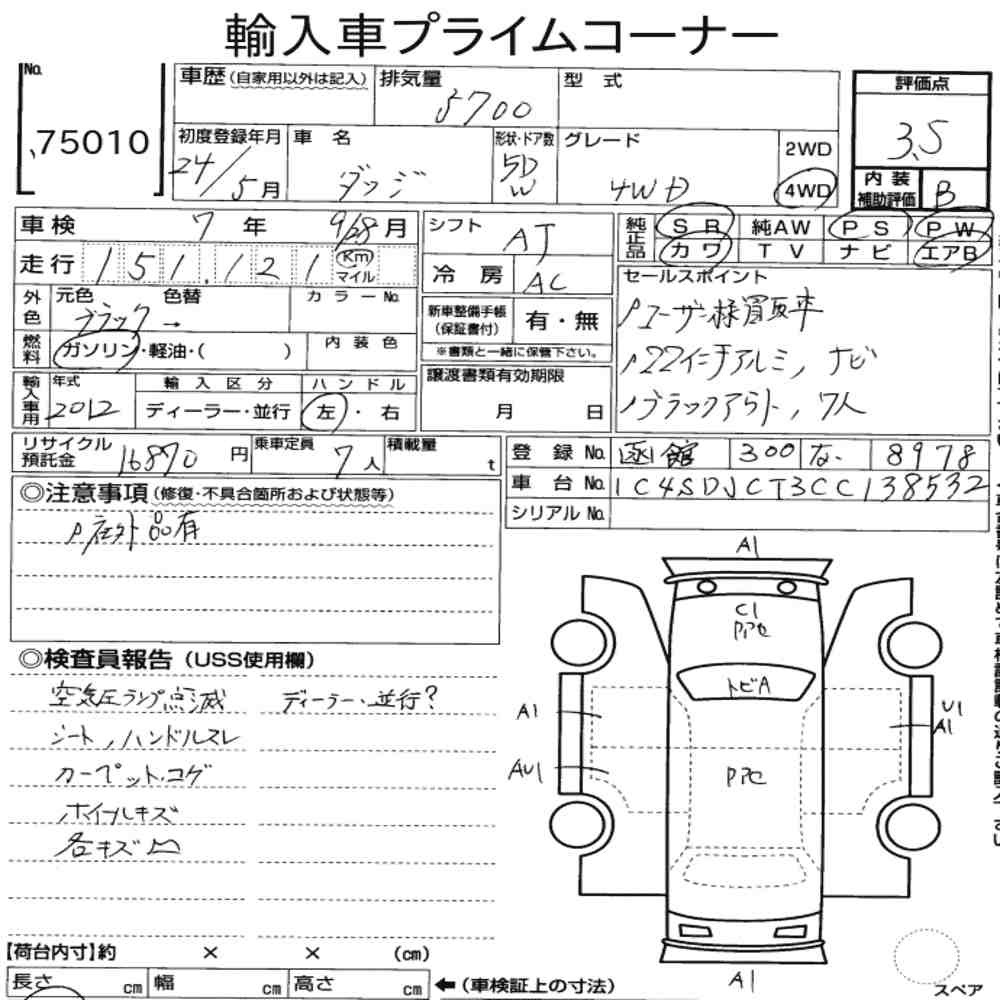 輸入車プライムコーナー
No. 75010
車歴(自家用以外は記入) 排気量 5700 型式
評価点 3.5
初度登録年月 24/5月 車名 ダッジ 形状・ドア数 5D W グレード 4WD 2WD 4WD
内装補助評価 B
車検 7年 9/28月 シフト AT
純正品 SR 純AW PS PW
カワ TV ナビ エアB
走行 151,121 Km マイル 冷房 AC
セールスポイント
外色 元色 ブラック → 色替 カラーNo.
新車整備手帳(保証書付) 有・無
※書類と一緒に保管下さい。
ユーザー様買取車
燃料 ガソリン・軽油・( ) 内装色
22インチアルミ, ナビ
輸入車用 年式 2012 輸入区分 ディーラー・並行 ハンドル 左・右
譲渡書類有効期限 月 日
7人
リサイクル預託金 16870円 乗車定員 7人 積載量 t
登録No. 函館 300 な 8978
車台No. 1C4SDJCT3CC138532
シリアルNo.
◎注意事項(修復・不具合箇所および状態等)
社外品有
◎検査員報告(USS使用欄)
空気圧ランプ点滅 ディーラー・並行?
シート,ハンドルスレ
カーペット.コゲ
ホイールキズ
各キズ凹
A1
C1
トビA
A1
U1
A1
AU1
A1
【荷台内寸】約 × × (cm)
長さ cm 幅 cm 高さ cm ←(車検証上の寸法)
スペア